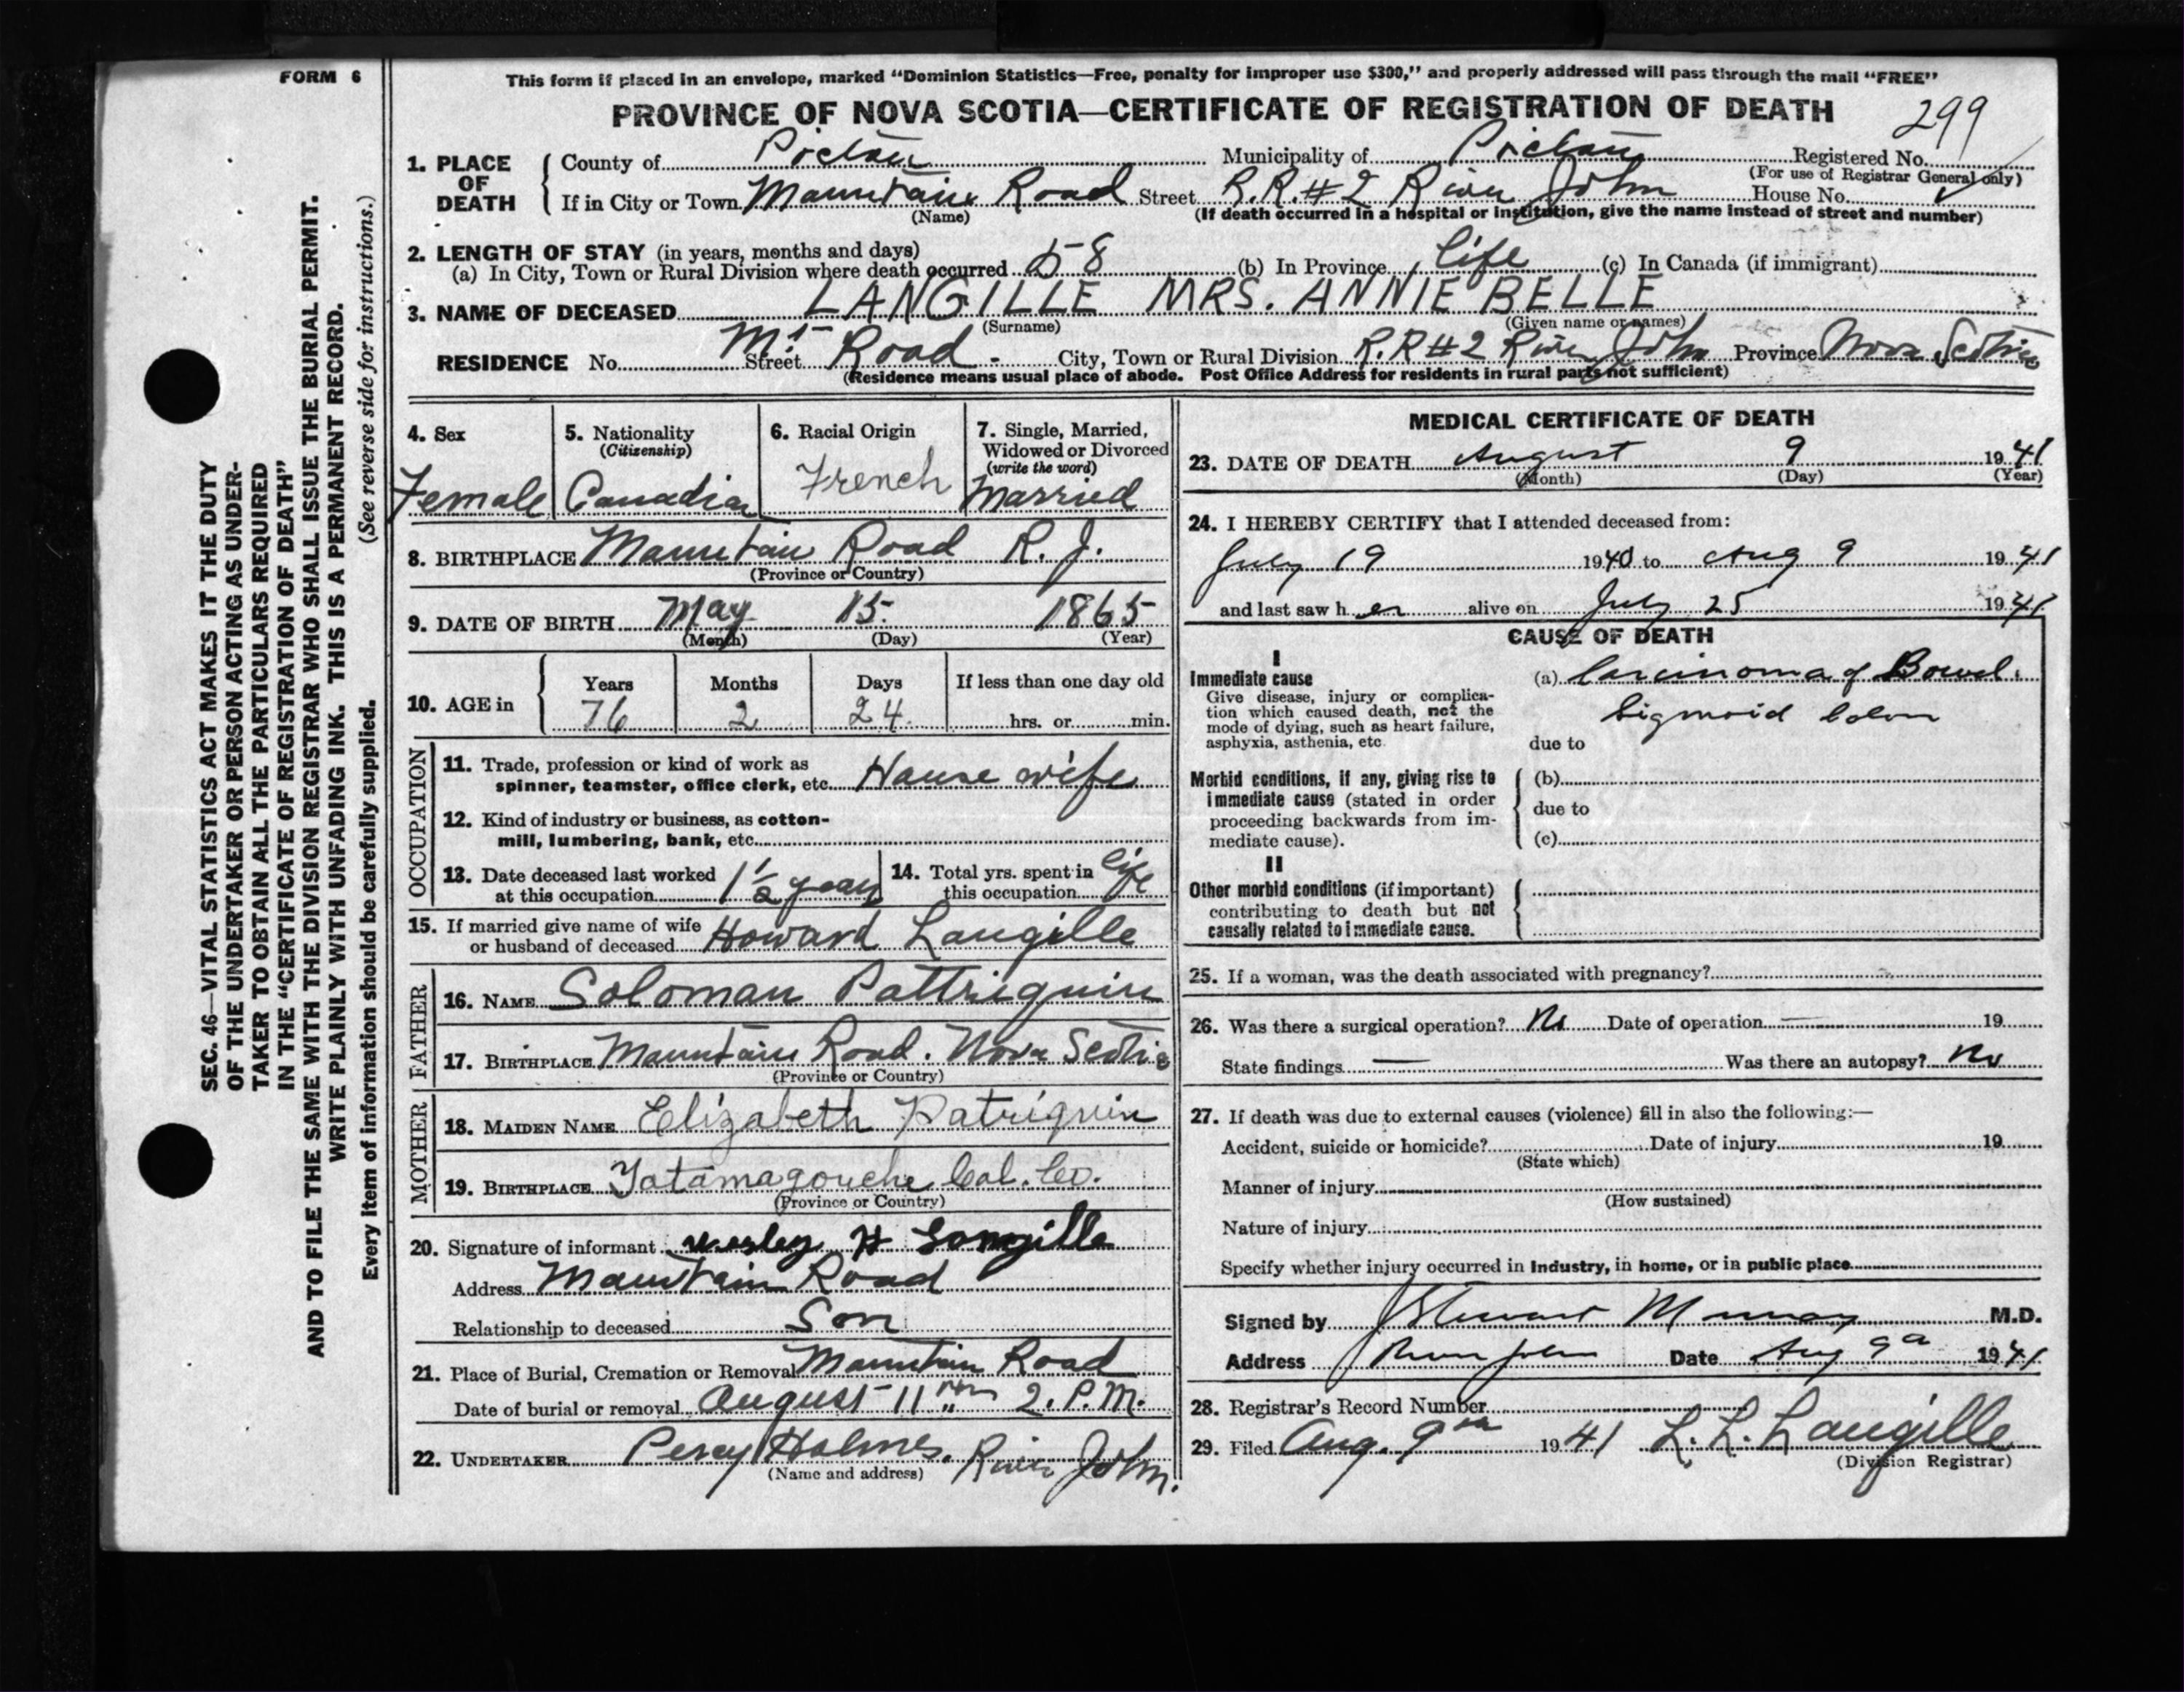 FORM 6
This form if placed in an envelope, marked "Dominion Statistics—Free, penalty for improper use $300," and properly addressed will pass through the mail "FREE"
PROVINCE OF NOVA SCOTIA—CERTIFICATE OF REGISTRATION OF DEATH
299
1. PLACE OF DEATH
County of Pictou Municipality of Pictou Registered No.
(For use of Registrar General only)
If in City or Town Mountain Road Street R.R.#2 River John House No.
(Name) (If death occurred in a hospital or institution, give the name instead of street and number)
2. LENGTH OF STAY (in years, months and days)
(a) In City, Town or Rural Division where death occurred 58 (b) In Province life (c) In Canada (if immigrant)
3. NAME OF DECEASED LANGILLE MRS. ANNIE BELLE
(Surname) (Given name or names)
RESIDENCE No. Street Mt Road - City, Town or Rural Division R.R #2 River John Province Nova Scotia
(Residence means usual place of abode. Post Office Address for residents in rural parts not sufficient)
4. Sex
Female
5. Nationality
(Citizenship)
Canadian
6. Racial Origin
French
7. Single, Married,
Widowed or Divorced
(write the word)
Married
8. BIRTHPLACE Mountain Road R. J.
(Province or Country)
9. DATE OF BIRTH May 15 1865
(Month) (Day) (Year)
10. AGE in
Years Months Days If less than one day old
76 2 24 hrs. or min.
OCCUPATION
11. Trade, profession or kind of work as
spinner, teamster, office clerk, etc. House wife
12. Kind of industry or business, as cotton-
mill, lumbering, bank, etc.
13. Date deceased last worked
at this occupation 1 1/2 year
14. Total yrs. spent in
this occupation life
15. If married give name of wife
or husband of deceased Howard Langille
FATHER
16. NAME Soloman Pattriquin
17. BIRTHPLACE Mountain Road. Nova Scotia
(Province or Country)
MOTHER
18. MAIDEN NAME Elizabeth Patriquin
19. BIRTHPLACE Tatamagouche Col. Co.
(Province or Country)
20. Signature of informant Wesley H Langille
Address Mountain Road
Relationship to deceased Son
21. Place of Burial, Cremation or Removal Mountain Road
Date of burial or removal August 11th 2. P.M.
22. UNDERTAKER Percy Holmes. River John.
(Name and address)
MEDICAL CERTIFICATE OF DEATH
23. DATE OF DEATH August 9 1941
(Month) (Day) (Year)
24. I HEREBY CERTIFY that I attended deceased from:
July 19 1940 to Aug 9 1941
and last saw her alive on July 25 1941
CAUSE OF DEATH
I
Immediate cause
Give disease, injury or complica-
tion which caused death, not the
mode of dying, such as heart failure,
asphyxia, asthenia, etc.
(a) Carcinoma of Bowel.
Sigmoid Colon
due to
Morbid conditions, if any, giving rise to
immediate cause (stated in order
proceeding backwards from im-
mediate cause).
(b)
due to
(c)
II
Other morbid conditions (if important)
contributing to death but not
causally related to immediate cause.
25. If a woman, was the death associated with pregnancy?
26. Was there a surgical operation? No Date of operation — 19
State findings — Was there an autopsy? No
27. If death was due to external causes (violence) fill in also the following:—
Accident, suicide or homicide? Date of injury 19
(State which)
Manner of injury
(How sustained)
Nature of injury
Specify whether injury occurred in Industry, in home, or in public place
Signed by J Stewart Murray M.D.
Address River John Date Aug 9 1941
28. Registrar's Record Number
29. Filed Aug. 9th 1941 L. L. Langille
(Division Registrar)
SEC. 46—VITAL STATISTICS ACT MAKES IT THE DUTY
OF THE UNDERTAKER OR PERSON ACTING AS UNDER-
TAKER TO OBTAIN ALL THE PARTICULARS REQUIRED
IN THE "CERTIFICATE OF REGISTRATION OF DEATH"
AND TO FILE THE SAME WITH THE DIVISION REGISTRAR WHO SHALL ISSUE THE BURIAL PERMIT.
WRITE PLAINLY WITH UNFADING INK. THIS IS A PERMANENT RECORD.
(See reverse side for instructions.)
Every item of information should be carefully supplied.